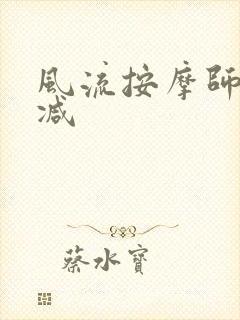 風流按摩師
减
蔡水寶